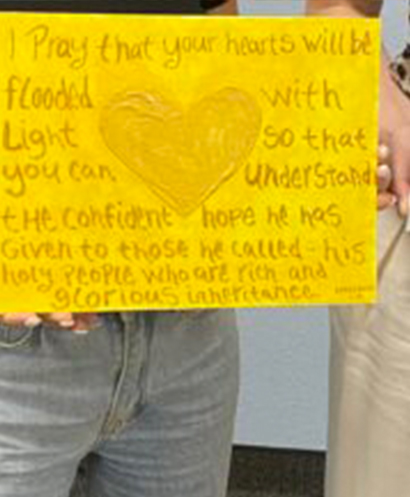 I Pray that your hearts will be
flooded with
Light so that
you can understand
the confident hope he has
Given to those he called - his
holy people who are rich and
glorious inheritance